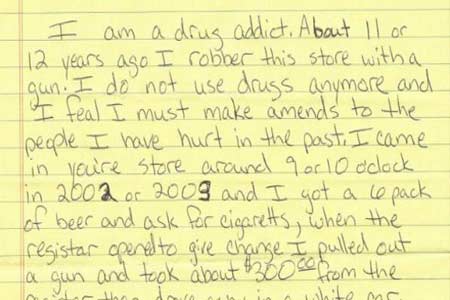 I am a drug addict. About 11 or
12 years ago I robber this store with a
gun. I do not use drugs anymore and
I feal I must make amends to the
people I have hurt in the past. I came
in you're store around 9 or 10 o'clock
in 2002 or 2003 and I got a 6 pack
of beer and ask for cigaretts, when the
registar opened to give change I pulled out
a gun and took about $300.00 from the